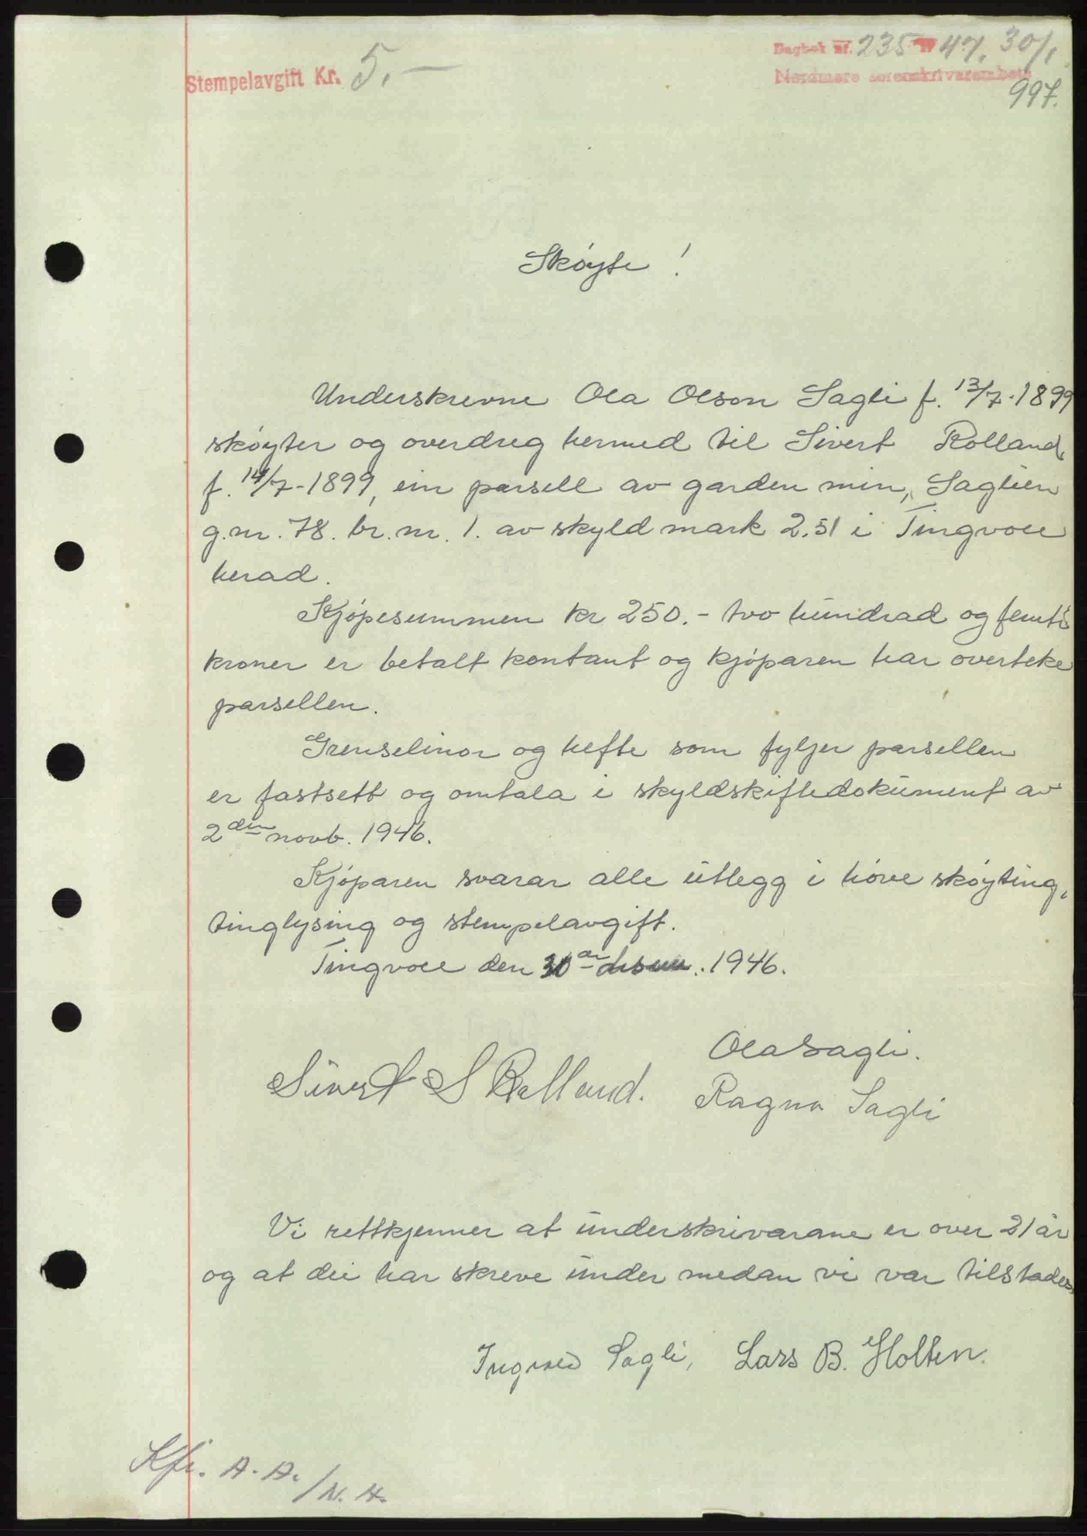 Stempelavgift Kr. 5.—
Dagbok nr. 235 47. 30/1
Nordmøre sorenskrivarembete
997.
Skøyte!
Underskrevne Ola Olson Sagli f. 13/7-1899
skøyter og overdreg hermed til Sivert Rolland,
f. 14/7-1899, ein parsell av garden min, Saglien
g.nr. 78. br.nr. 1. av skyld mark 2.51 i Tingvoll
herad.
Kjøpesummen kr 250.- tvo hundrad og femti
kroner er betalt kontant og kjøparen har overteke
parsellen.
Grenselinor og hefte som fyljer parsellen
er fastsett og omtala i skyldskiftedokument av
2den novb. 1946.
Kjøparen svarar alle utlegg i høve skøyting,
tinglysing og stempelavgift.
Tingvoll den 30ar desem. 1946.
Ola Sagli.
Sivert S Rolland. Ragna Sagli
Vi rettkjenner at underskrivarane er over 21 år
og at dei har skreve under medan vi var tilstades
Ingvald Sagli, Lars B. Holten.
Kfr. A. A.
/N. H.